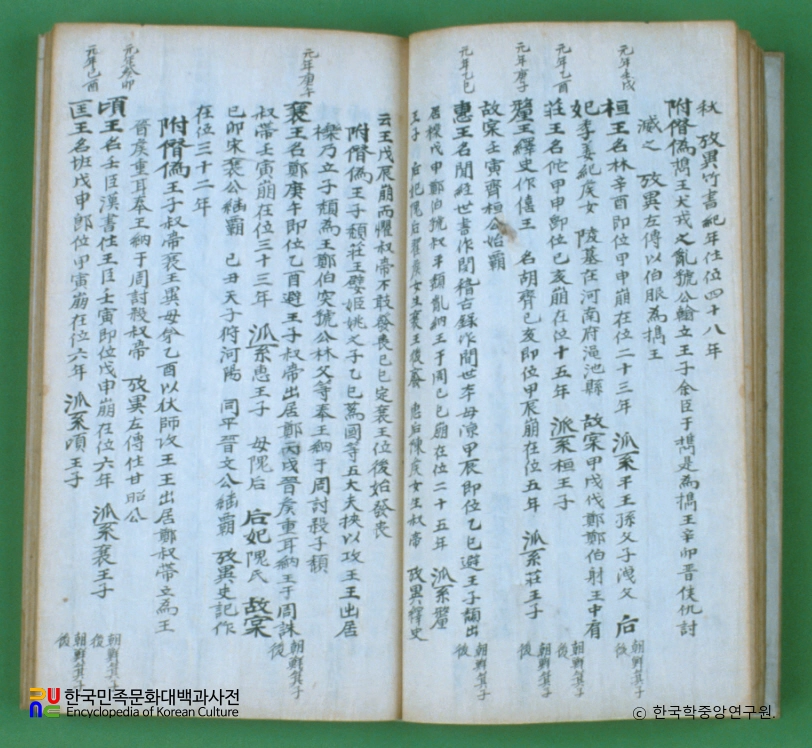 秋 攷異竹書紀年在位四十八年
附僭僞攜王犬戎之亂虢公翰立王子余臣于攜是為攜王辛卯晉侯仇討
滅之 攷異左傳以伯服為攜王
元年壬戌
桓王名林辛酉即位甲申崩在位二十三年 派系平王孫父子洩父 后
朝鮮箕子後
妃季姜紀侯女 陵墓在河南府澠池縣 故案甲戌伐鄭鄭伯射王中肩
元年乙酉
莊王名佗甲申即位己亥崩在位十五年 派系桓王子
朝鮮箕子後
元年庚子
釐王繹史作僖王 名胡齊己亥即位甲辰崩在位五年 派系莊王子
朝鮮箕子後
故案壬寅齊桓公始霸
元年乙巳
惠王名閬經世書作閒稽古錄作閬世本毋涼甲辰即位乙巳避王子頹出
朝鮮箕子後
居櫟戊申鄭伯虢叔平頹亂納王于周己巳崩在位二十五年 派系釐
王子 后妃隗后翟侯女生襄王復廢 惠后陳侯女生叔帶 攷異繹史
云王戊辰崩而懼叔帶不敢發喪己巳定襄王位後始發喪
附僭僞王子頹莊王嬖姬姚之子乙巳蔿國等五大夫挾以攻王王出居
櫟乃立子頹為王鄭伯突虢公林父等奉王納于周討殺子頹
元年庚午
襄王名鄭庚午即位乙酉避王子叔帶出居鄭丙戌晉侯重耳納王于周誅
朝鮮箕子後
叔帶壬寅崩在位三十三年 派系惠王子 母隗后 后妃隗氏 故案
己卯宋襄公繼霸 己丑天子狩河陽 同年晉文公繼霸 攷異史記作
在位三十二年
附僭僞王子叔帶襄王異母弟乙酉以狄師攻王王出居鄭叔帶立為王
晉侯重耳奉王納于周討殺叔帶 攷異左傳作甘昭公
元年癸卯
頃王名壬臣漢書作王臣壬寅即位戊申崩在位六年 派系襄王子
朝鮮箕子後
元年己酉
匡王名班戊申即位甲寅崩在位六年 派系頃王子
朝鮮箕子後
한국민족문화대백과사전
Encyclopedia of Korean Culture
© 한국학중앙연구원.